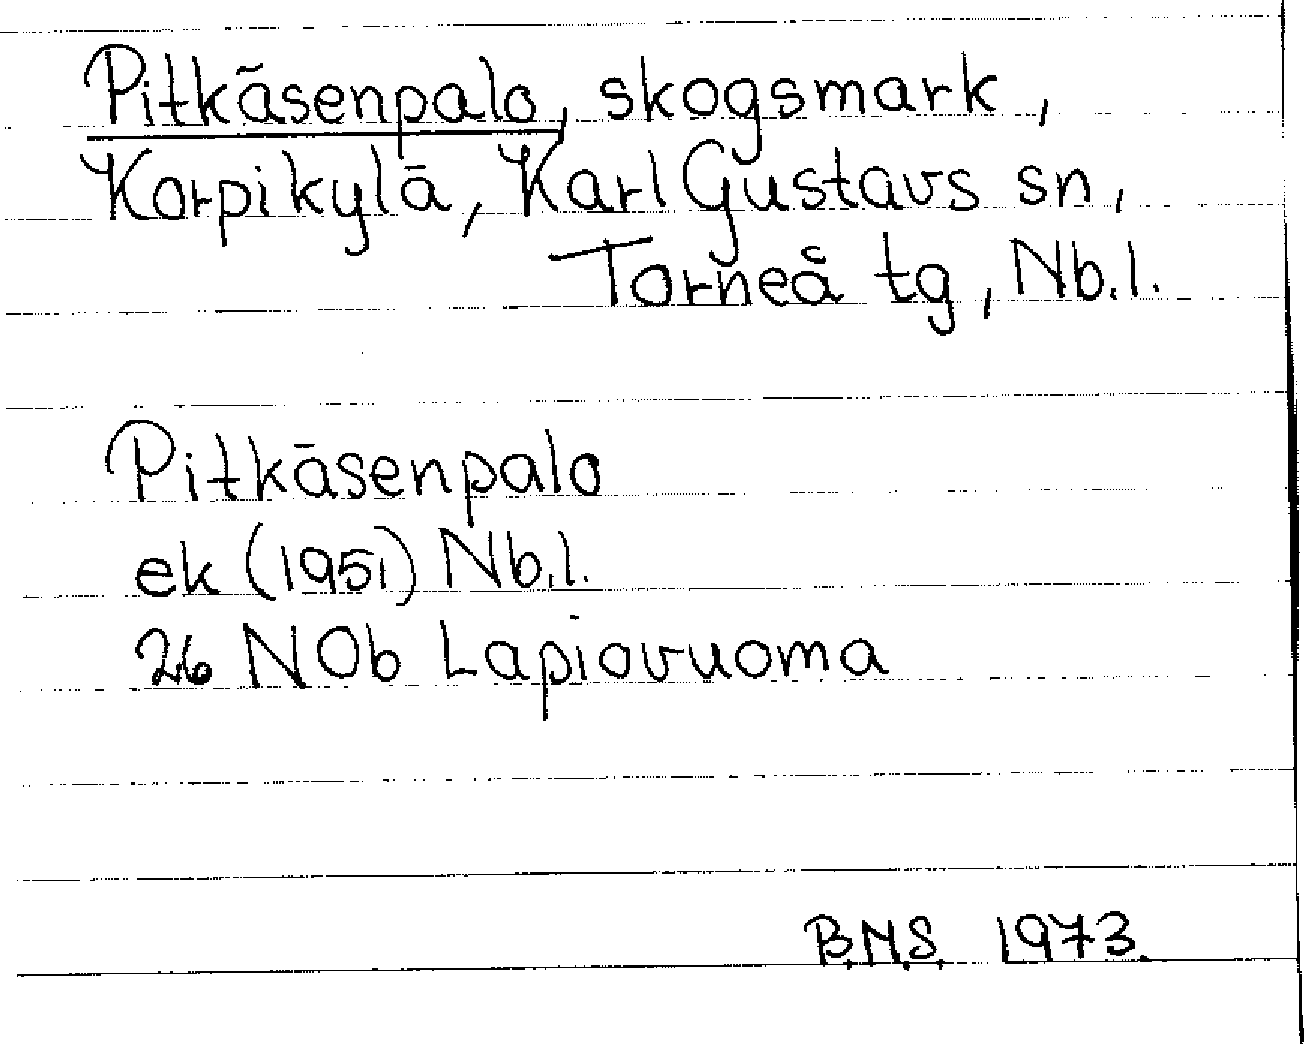 Pitkäsenpalo, skogsmark,
Korpikylä, Karl Gustavs sn,
Torneå tg, Nb.l.
Pitkäsenpalo
ek (1951) Nb.l.
26 NOb Lapiovuoma
B.N.S. 1973.